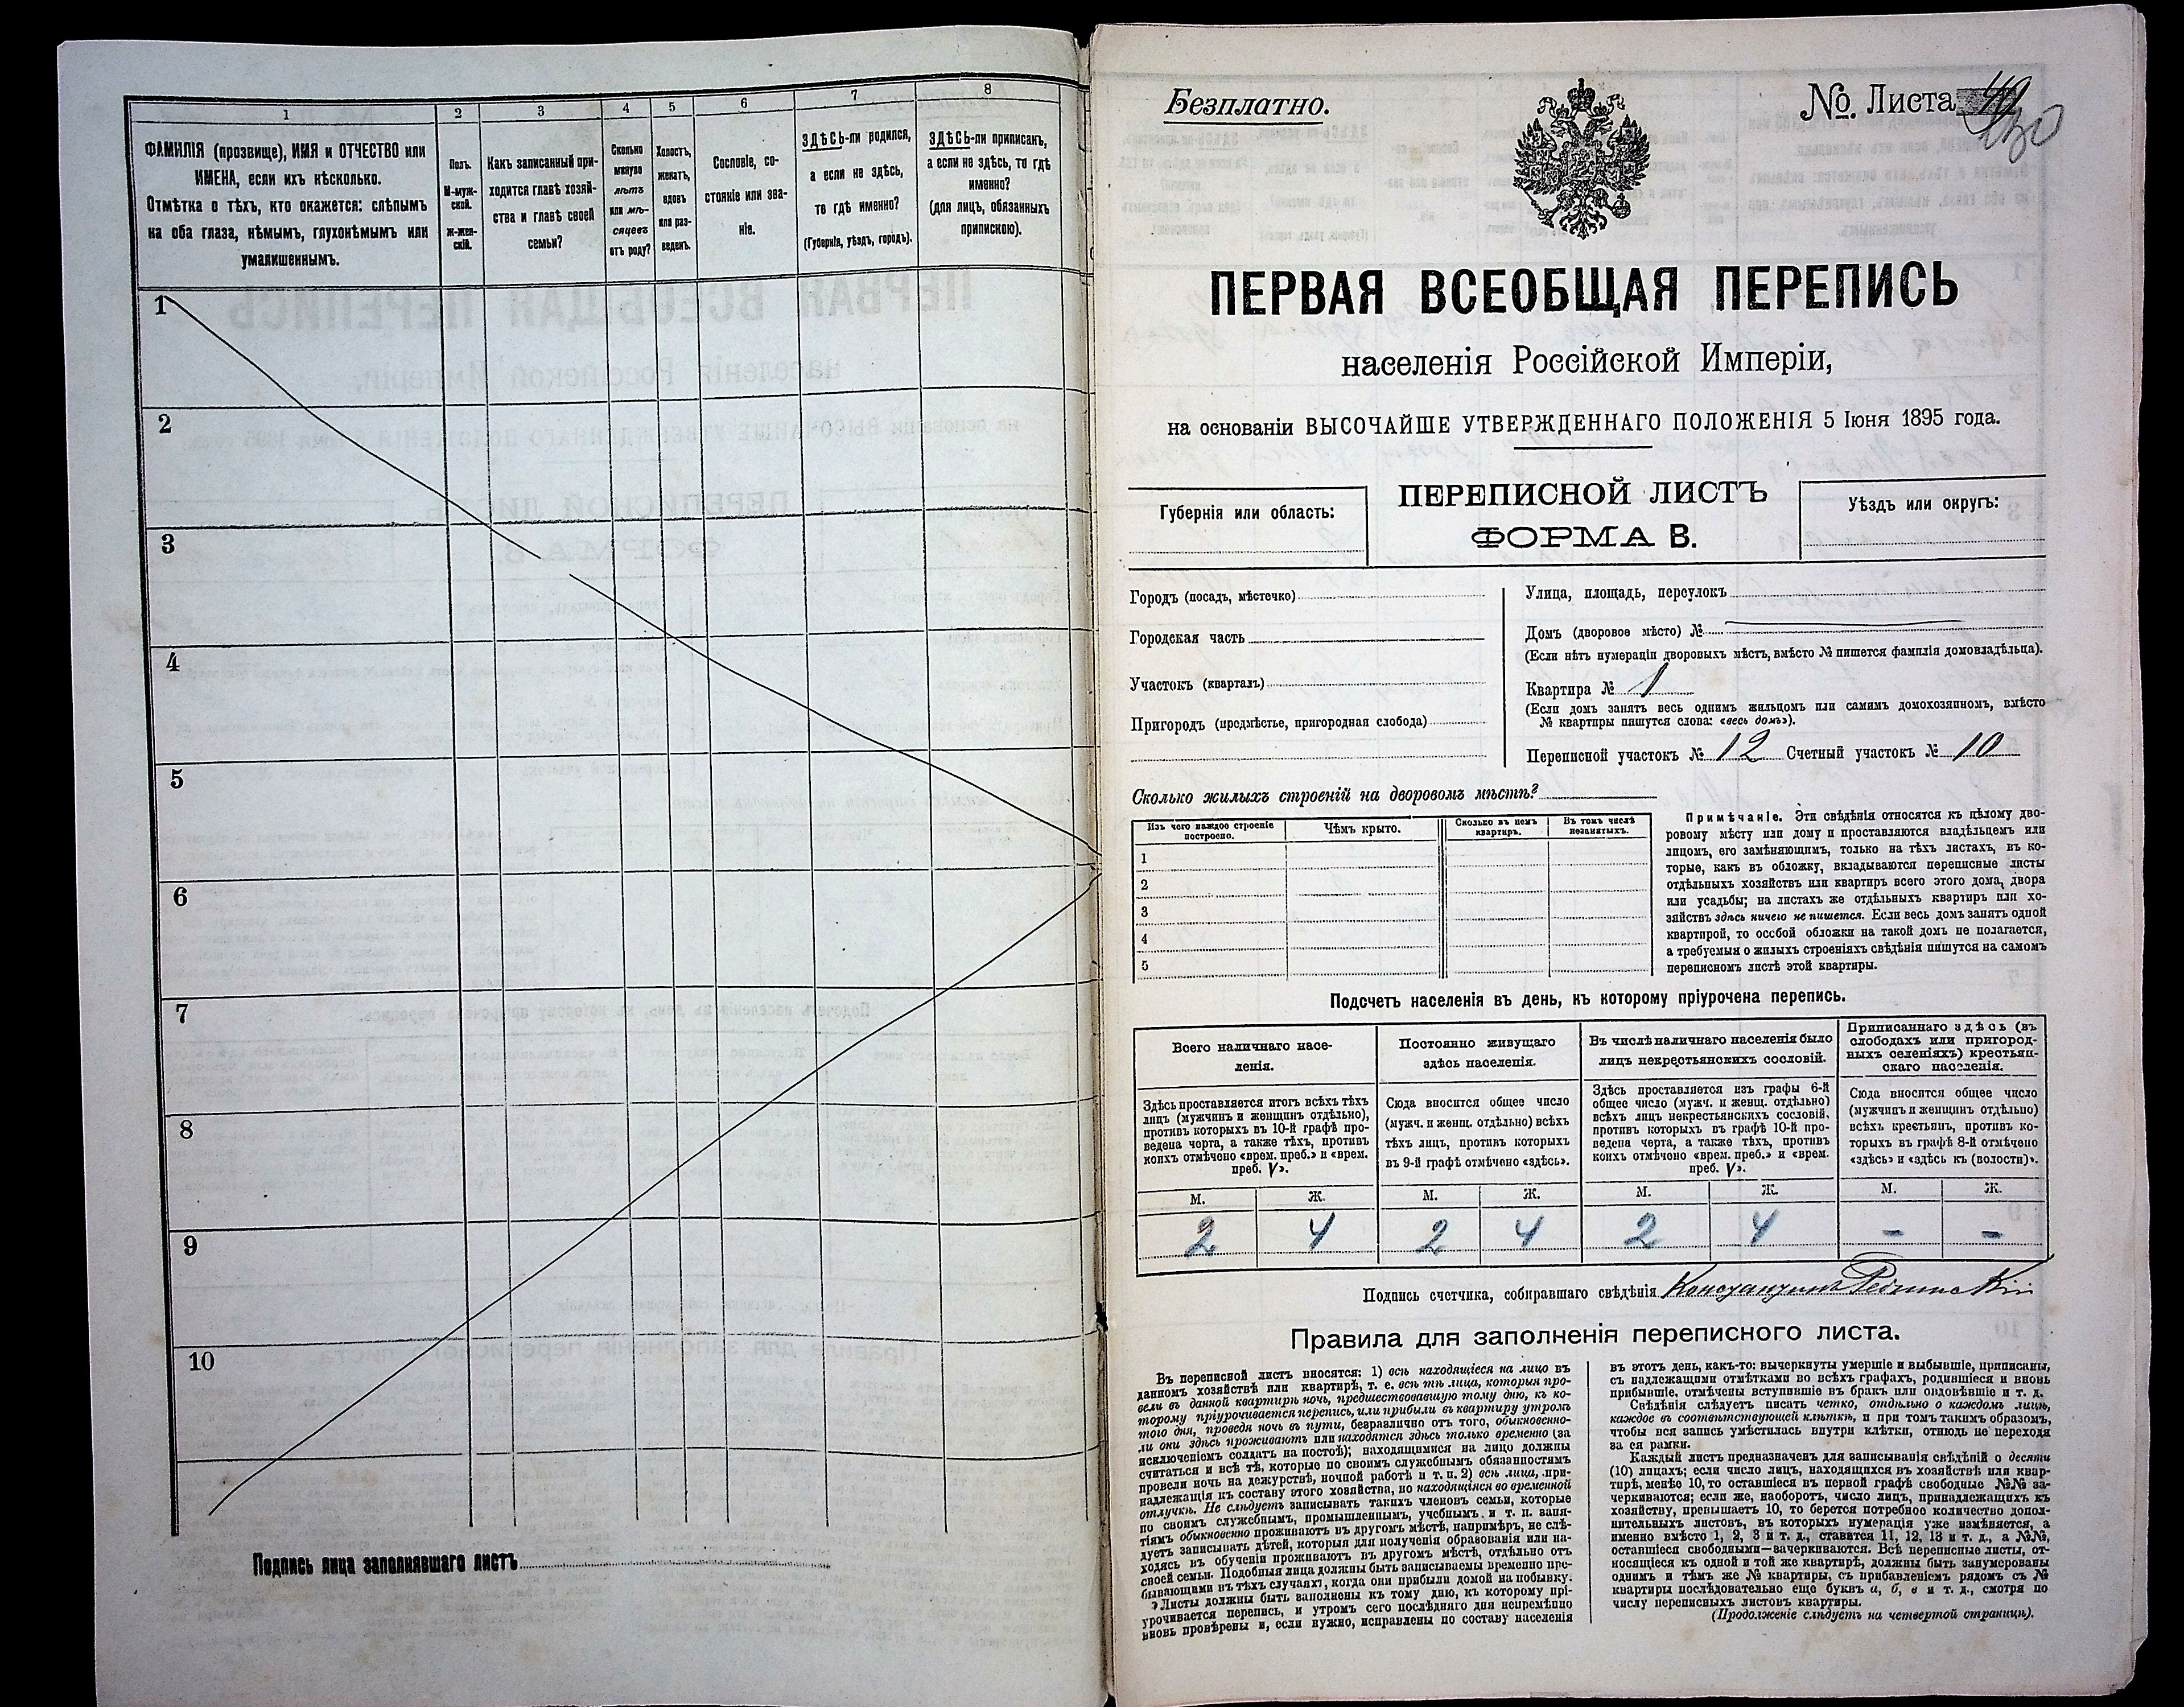 1
2
3
4
5
6
7
8
ФАМИЛІЯ (прозвище), ИМЯ и ОТЧЕСТВО или
ИМЕНА, если ихъ нѣсколько.
Отмѣтка о тѣхъ, кто окажется: слѣпымъ
на оба глаза, нѣмымъ, глухонѣмымъ или
умалишеннымъ.
Полъ.
М-муж-
ской.
Ж-жен-
скій.
Какъ записанный при-
ходится главѣ хозяй-
ства и главѣ своей
семьи?
Сколько
минуло
лѣтъ
или мѣ-
сяцевъ
отъ роду?
Холостъ,
женатъ,
вдовъ
или раз-
веденъ.
Сословіе, со-
стояніе или зва-
ніе.
ЗДѢСЬ-ли родился,
а если не здѣсь,
то гдѣ именно?
(Губернія, уѣздъ, городъ).
ЗДѢСЬ-ли приписанъ,
а если не здѣсь, то гдѣ
именно?
(для лицъ, обязанныхъ
припискою).
1
2
3
4
5
6
7
8
9
10
Подпись лица заполнявшаго листъ
Безплатно.
№. Листа
ПЕРВАЯ ВСЕОБЩАЯ ПЕРЕПИСЬ
населенія Россійской Имперіи,
на основаніи ВЫСОЧАЙШЕ УТВЕРЖДЕННАГО ПОЛОЖЕНІЯ 5 Іюня 1895 года.
Губернія или область:
ПЕРЕПИСНОЙ ЛИСТЪ
ФОРМА В.
Уѣздъ или округъ:
Городъ (посадъ, мѣстечко)
Городская часть
Участокъ (кварталъ)
Пригородъ (предмѣстье, пригородная слобода)
Улица, площадь, переулокъ
Домъ (дворовое мѣсто) №
(Если нѣтъ нумераціи дворовыхъ мѣстъ, вмѣсто № пишется фамилія домовладѣльца).
Квартира № 1
(Если домъ занятъ весь однимъ жильцомъ или самимъ домохозяиномъ, вмѣсто
№ квартиры пишутся слова: «весь домъ»).
Переписной участокъ № 12 Счетный участокъ № 10
Сколько жилыхъ строеній на дворовомъ мѣстѣ?
Изъ чего каждое строеніе
построено.
Чѣмъ крыто.
Сколько въ немъ
квартиръ.
Въ томъ числѣ
незанятыхъ.
1
2
3
4
5
Примѣчаніе. Эти свѣдѣнія относятся къ цѣлому дво-
ровому мѣсту или дому и проставляются владѣльцемъ или
лицомъ, его замѣняющимъ, только на тѣхъ листахъ, въ ко-
торые, какъ въ обложку, вкладываются переписные листы
отдѣльныхъ хозяйствъ или квартиръ всего этого дома, двора
или усадьбы; на листахъ же отдѣльныхъ квартиръ или хо-
зяйствъ здѣсь ничего не пишется. Если весь домъ занятъ одной
квартирой, то особой обложки на такой домъ не полагается,
а требуемыя о жилыхъ строеніяхъ свѣдѣнія пишутся на самомъ
переписномъ листѣ этой квартиры.
Подсчетъ населенія въ день, къ которому пріурочена перепись.
Всего наличнаго насе-
ленія.
Постоянно живущаго
здѣсь населенія.
Въ числѣ наличнаго населенія было
лицъ некрестьянскихъ сословій.
Приписаннаго здѣсь (въ
слободахъ или пригород-
ныхъ селеніяхъ) крестьян-
скаго населенія.
Здѣсь проставляется итогъ всѣхъ тѣхъ
лицъ (мужчинъ и женщинъ отдѣльно),
противъ которыхъ въ 10-й графѣ про-
ведена черта, а также тѣхъ, противъ
коихъ отмѣчено «врем. преб.» и «врем.
преб. V».
Сюда вносится общее число
(мужч. и женщ. отдѣльно) всѣхъ
тѣхъ лицъ, противъ которыхъ
въ 9-й графѣ отмѣчено «здѣсь».
Здѣсь проставляется изъ графы 6-й
общее число (мужч. и женщ. отдѣльно)
всѣхъ лицъ некрестьянскихъ сословій,
противъ которыхъ въ графѣ 10-й про-
ведена черта, а также тѣхъ, противъ
коихъ отмѣчено «врем. преб.» и «врем.
преб. V».
Сюда вносится общее число
(мужчинъ и женщинъ отдѣльно)
всѣхъ крестьянъ, противъ ко-
торыхъ въ графѣ 8-й отмѣчено
«здѣсь» и «здѣсь къ (волости)».
М. Ж. М. Ж. М. Ж. М. Ж.
2 4 2 4 2 4 - -
Подпись счетчика, собиравшаго свѣдѣнія Константинъ
Правила для заполненія переписного листа.
Въ переписной листъ вносятся: 1) всѣ находящіеся на лицо въ
данномъ хозяйствѣ или квартирѣ, т. е. всѣ тѣ лица, которыя про-
вели въ данной квартирѣ ночь, предшествовавшую тому дню, къ ко-
торому пріурочивается перепись, или прибыли въ квартиру утромъ
того дня, проведя ночь въ пути, безразлично отъ того, обыкновенно-
ли они здѣсь проживаютъ или находятся здѣсь только временно (за
исключеніемъ солдатъ на постоѣ); находящимися на лицо должны
считаться и всѣ тѣ, которые по своимъ служебнымъ обязанностямъ
провели ночь на дежурствѣ, ночной работѣ и т. п. 2) всѣ лица, при-
надлежащія къ составу этого хозяйства, но находящіяся во временной
отлучкѣ. Не слѣдуетъ записывать такихъ членовъ семьи, которые
по своимъ служебнымъ, промышленнымъ, учебнымъ и т. п. заня-
тіямъ обыкновенно проживаютъ въ другомъ мѣстѣ, напримѣръ, не слѣ-
дуетъ записывать дѣтей, которыя для полученія образованія или на-
ходясь въ обученіи проживаютъ въ другомъ мѣстѣ, отдѣльно отъ
своей семьи. Подобныя лица должны быть записываемы временно пре-
бывающими въ тѣхъ случаяхъ, когда они прибыли домой на побывку.
Листы должны быть заполнены къ тому дню, къ которому прі-
урочивается перепись, и утромъ сего послѣдняго дня непремѣнно
вновь провѣрены и, если нужно, исправлены по составу населенія
въ этотъ день, какъ-то: вычеркнуты умершіе и выбывшіе, приписаны,
съ надлежащими отмѣтками во всѣхъ графахъ, родившіеся и вновь
прибывшіе, отмѣчены вступившіе въ бракъ или овдовѣвшіе и т. д.
Свѣдѣнія слѣдуетъ писать четко, отдѣльно о каждомъ лицѣ,
каждое въ соотвѣтствующей клѣткѣ, и при томъ такимъ образомъ,
чтобы вся запись умѣстилась внутри клѣтки, отнюдь не переходя
за ея рамки.
Каждый листъ предназначенъ для записыванія свѣдѣній о десяти
(10) лицахъ; если число лицъ, находящихся въ хозяйствѣ или квар-
тирѣ, менѣе 10, то оставшіеся въ первой графѣ свободные №№ за-
черкиваются; если же, наоборотъ, число лицъ, принадлежащихъ къ
хозяйству, превышаетъ 10, то берется потребное количество допол-
нительныхъ листовъ, въ которыхъ нумерація уже измѣняется, а
именно вмѣсто 1, 2, 3 и т. д., ставится 11, 12, 13 и т. д., а №№,
оставшіеся свободными—зачеркиваются. Всѣ переписные листы, от-
носящіеся къ одной и той же квартирѣ, должны быть занумерованы
однимъ и тѣмъ же № квартиры, съ прибавленіемъ рядомъ съ №
квартиры послѣдовательно еще буквъ а, б, в и т. д., смотря по
числу переписныхъ листовъ квартиры.
(Продолженіе слѣдуетъ на четвертой страницѣ).